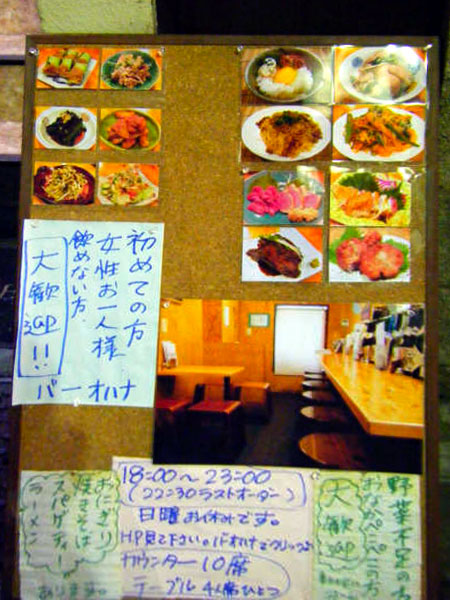 初めての方
女性お一人様
飲めない方.
大歓迎!!
バーオハナ
おにぎり
焼きそば
スパゲティー
ラーメン
あります。
18:00〜23:00
(22:30ラストオーダー)
日曜お休みです。
HP見て下さい。バーオハナでクリック
カウンター10席
テーブル 4人席ひとつ
野菜不足の方
おなかぺこぺこの方
大歓迎